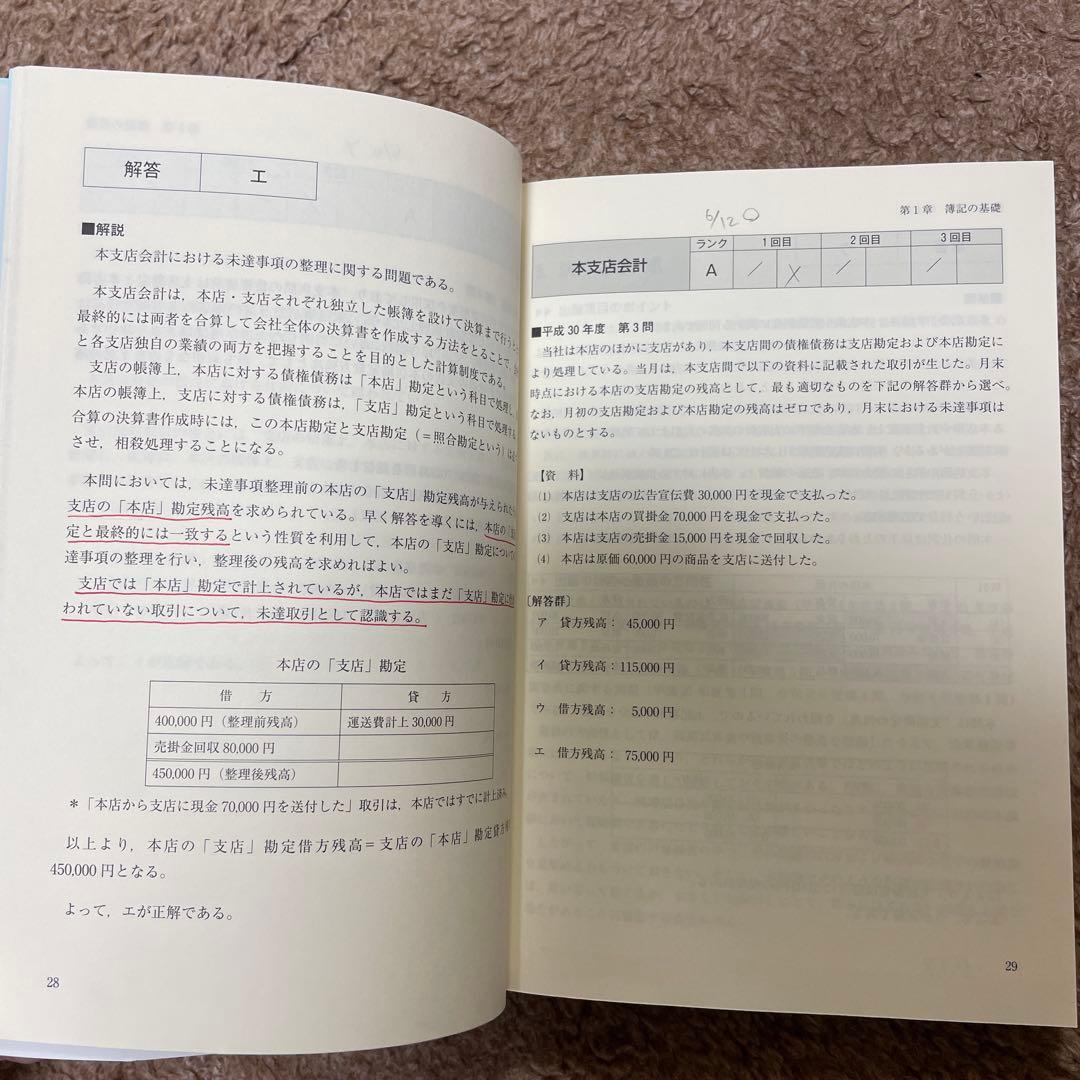 解答 エ
■解説
本支店会計における未達事項の整理に関する問題である。
本支店会計は，本店・支店それぞれ独立した帳簿を設けて決算まで行
最終的には両者を合算して会社全体の決算書を作成する方法をとることで，
と各支店独自の業績の両方を把握することを目的とした計算制度である。
支店の帳簿上，本店に対する債権債務は「本店」勘定という科目で処理し，
本店の帳簿上，支店に対する債権債務は，「支店」勘定という科目で処理する
合算の決算書作成時には，この本店勘定と支店勘定（＝照合勘定という）は
させ，相殺処理することになる。
本問においては，未達事項整理前の本店の「支店」勘定残高が与えられ
支店の「本店」勘定残高を求められている。早く解答を導くには，本店の
定と最終的には一致するという性質を利用して，本店の「支店」勘定について
達事項の整理を行い，整理後の残高を求めればよい。
支店では「本店」勘定で計上されているが，本店ではまだ「支店」勘定に
われていない取引について，未達取引として認識する。
本店の「支店」勘定
借 方 貸 方
400,000円（整理前残高） 運送費計上 30,000円
売掛金回収 80,000円
450,000円（整理後残高）
＊「本店から支店に現金 70,000円を送付した」取引は，本店ではすでに計上済み
以上より，本店の「支店」勘定借方残高＝支店の「本店」勘定貸方
450,000円となる。
よって，エが正解である。
28
第1章 簿記の基礎
6/12 ○
本支店会計 ランク 1回目 2回目 3回目
A ／ X ／ ／
■平成30年度 第3問
当社は本店のほかに支店があり，本支店間の債権債務は支店勘定および本店勘定に
より処理している。当月は，本支店間で以下の資料に記載された取引が生じた。月末
時点における本店の支店勘定の残高として，最も適切なものを下記の解答群から選べ。
なお，月初の支店勘定および本店勘定の残高はゼロであり，月末における未達事項は
ないものとする。
【資 料】
(1) 本店は支店の広告宣伝費 30,000円を現金で支払った。
(2) 支店は本店の買掛金 70,000円を現金で支払った。
(3) 本店は支店の売掛金 15,000円を現金で回収した。
(4) 本店は原価 60,000円の商品を支店に送付した。
〔解答群〕
ア 貸方残高： 45,000円
イ 貸方残高：115,000円
ウ 借方残高： 5,000円
エ 借方残高： 75,000円
29